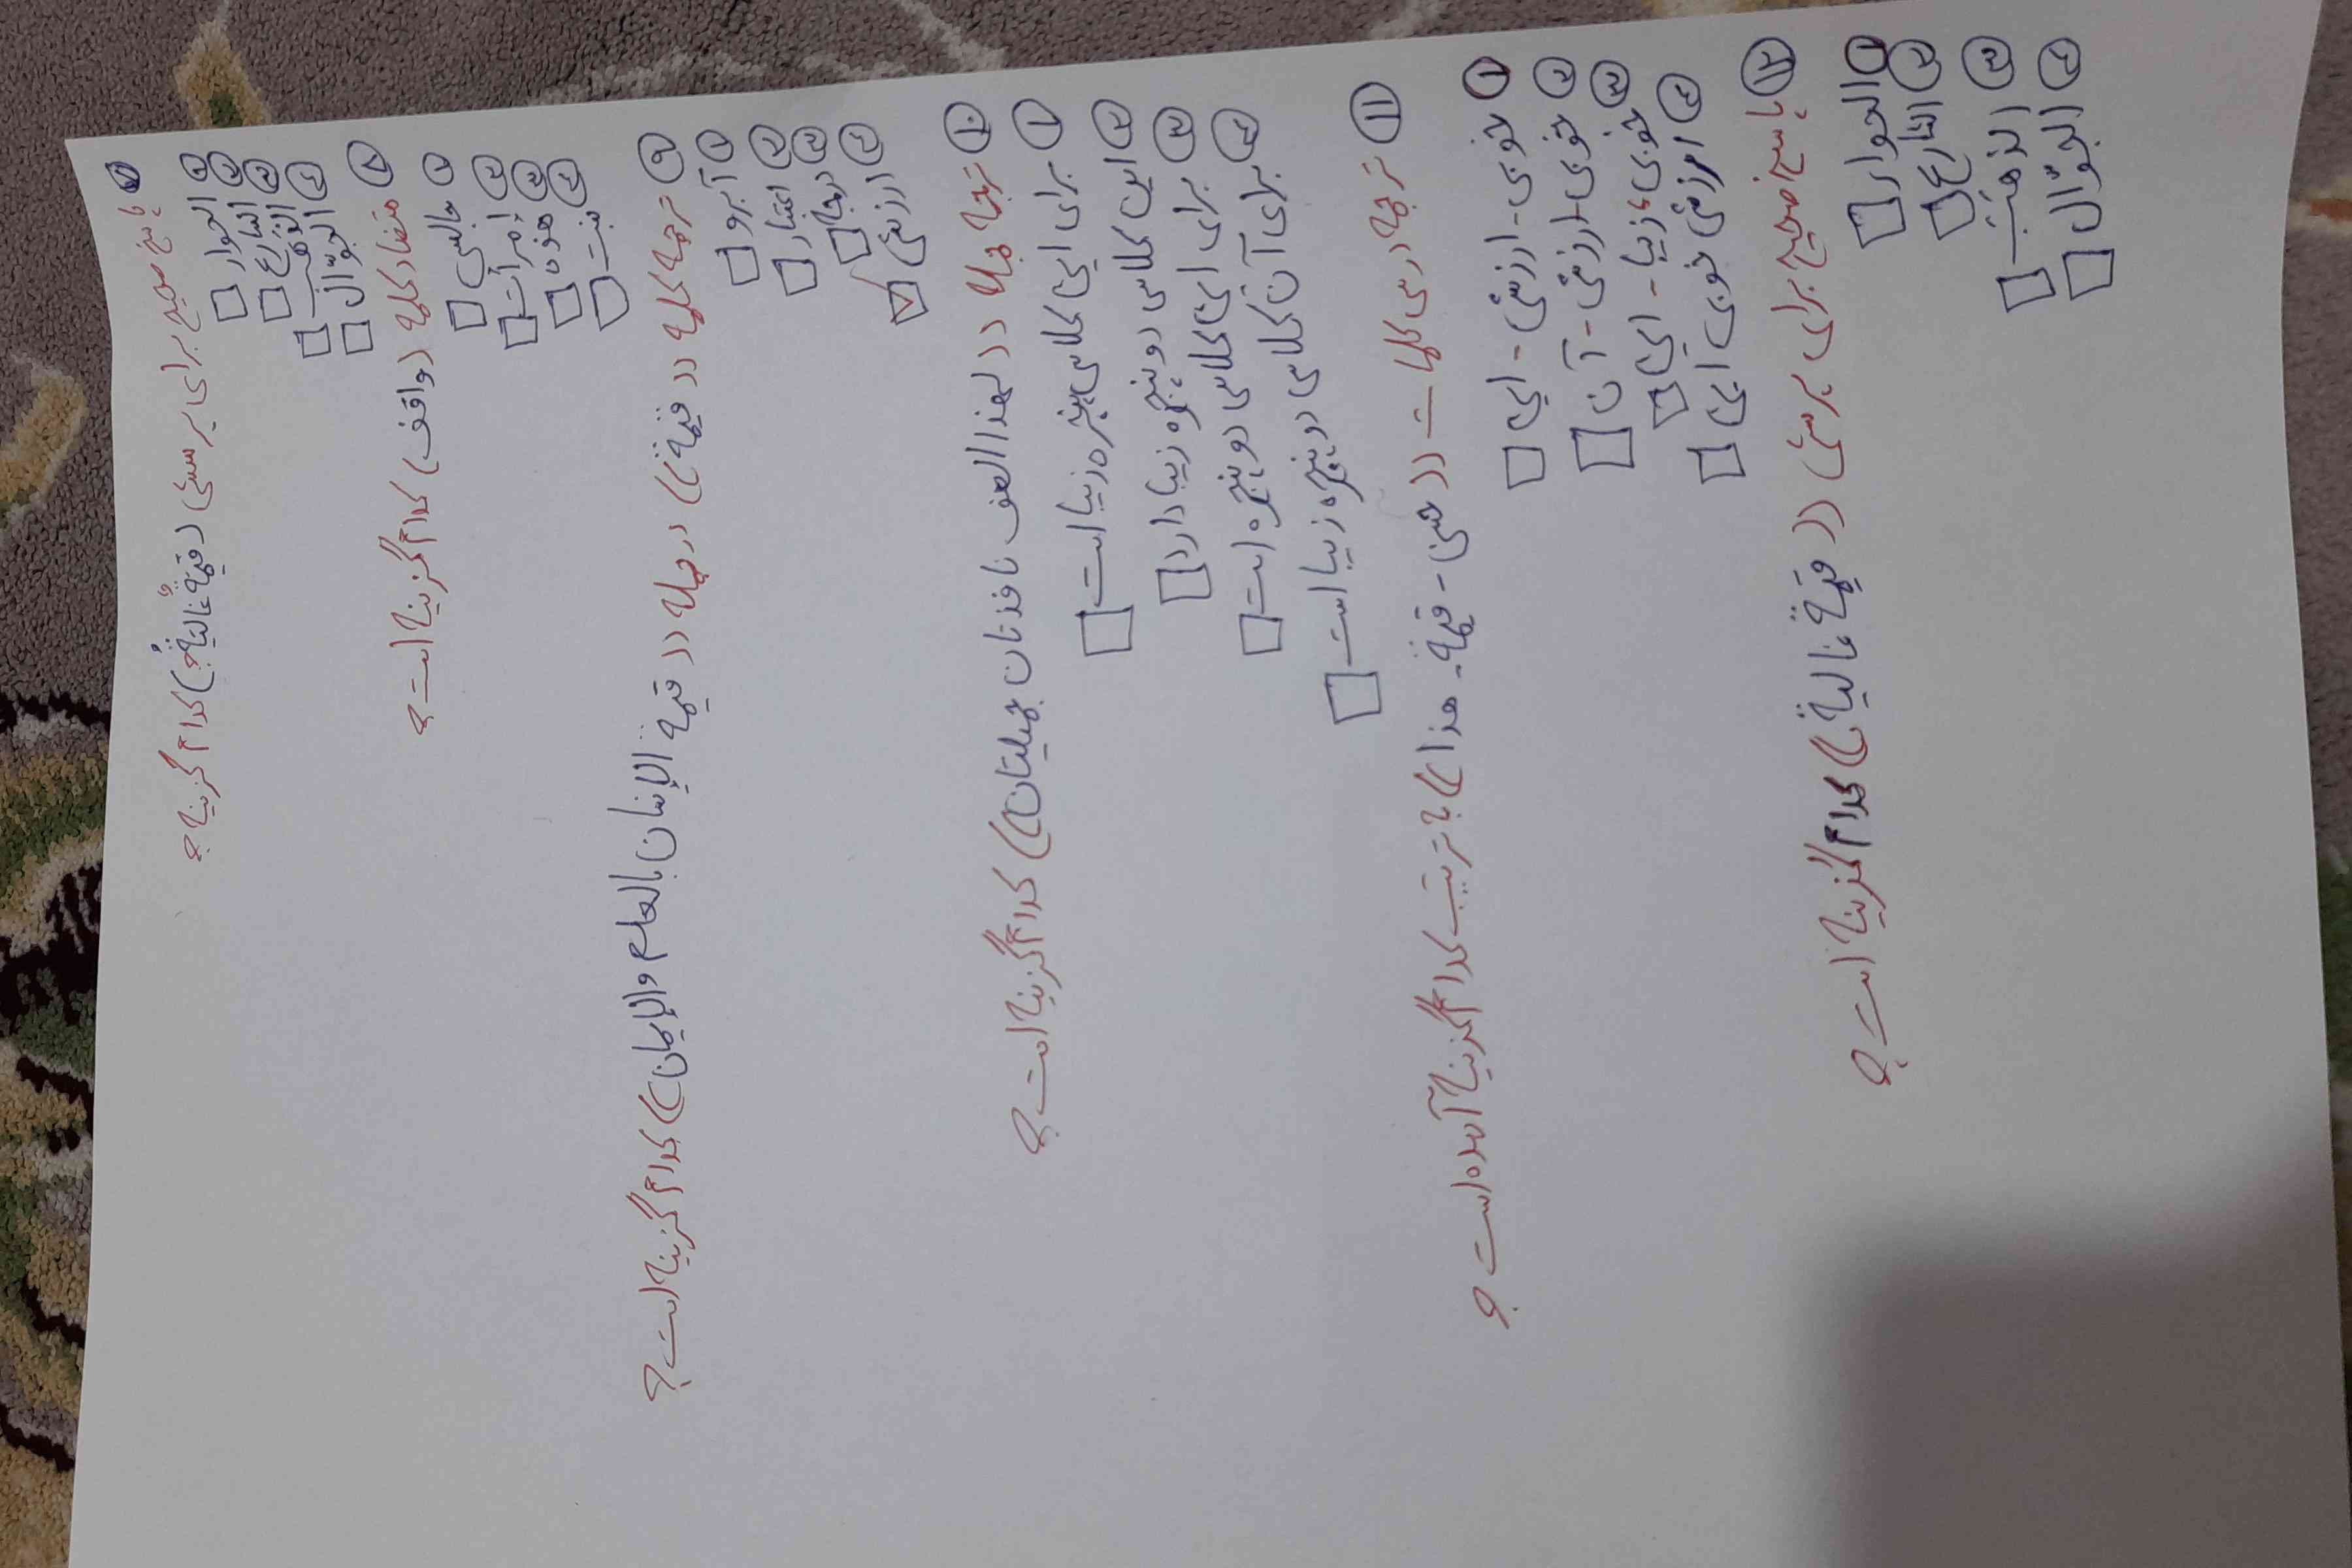 ۷ پاسخ صحیح برای پرسش (قیمةٌ غالیةٌ) کدام گزینه؟
۱ الحوار
۲ الشارع
۳ الذهب
۴ الجوّال
۸ متضاد کلمه (واقف) کدام گزینه است؟
۱ جالس
۲ إمرأت
۳ هؤنا
۴ بنت
۹ ترجمه کلمه ((قیمة)) در جمله ((قیمة الإنسان بالعلم والإیمان)) کدام گزینه است؟
۱ آبرو
۲ اعتبار
۳ ایجاز
۴ ارزش
۱۰ ترجمه جمله ((لهذا الصف نافذتان جمیلتان)) کدام گزینه است؟
۱ برای این کلاس پنجره زیبا است
۲ این کلاس دو پنجره زیبا دارد
۳ برای این کلاس دو پنجره است
۴ برای آن کلاس دو پنجره زیبا است
۱۱ ترجمه درس کلمات ((حسن - قیمة - هذا)) با ترتیب کدام گزینه آمده است؟
۱ خوبی - ارزش - این
۲ خوبی - ارزش - آن
۳ خوبی - زیبا - این
۴ ارزش خوبی این
۱۲ پاسخ صحیح برای پرسش ((قیمة غالیة)) کدام گزینه است؟
۱ الحوار
۲ الشارع
۳ الذهب
۴ الجوّال